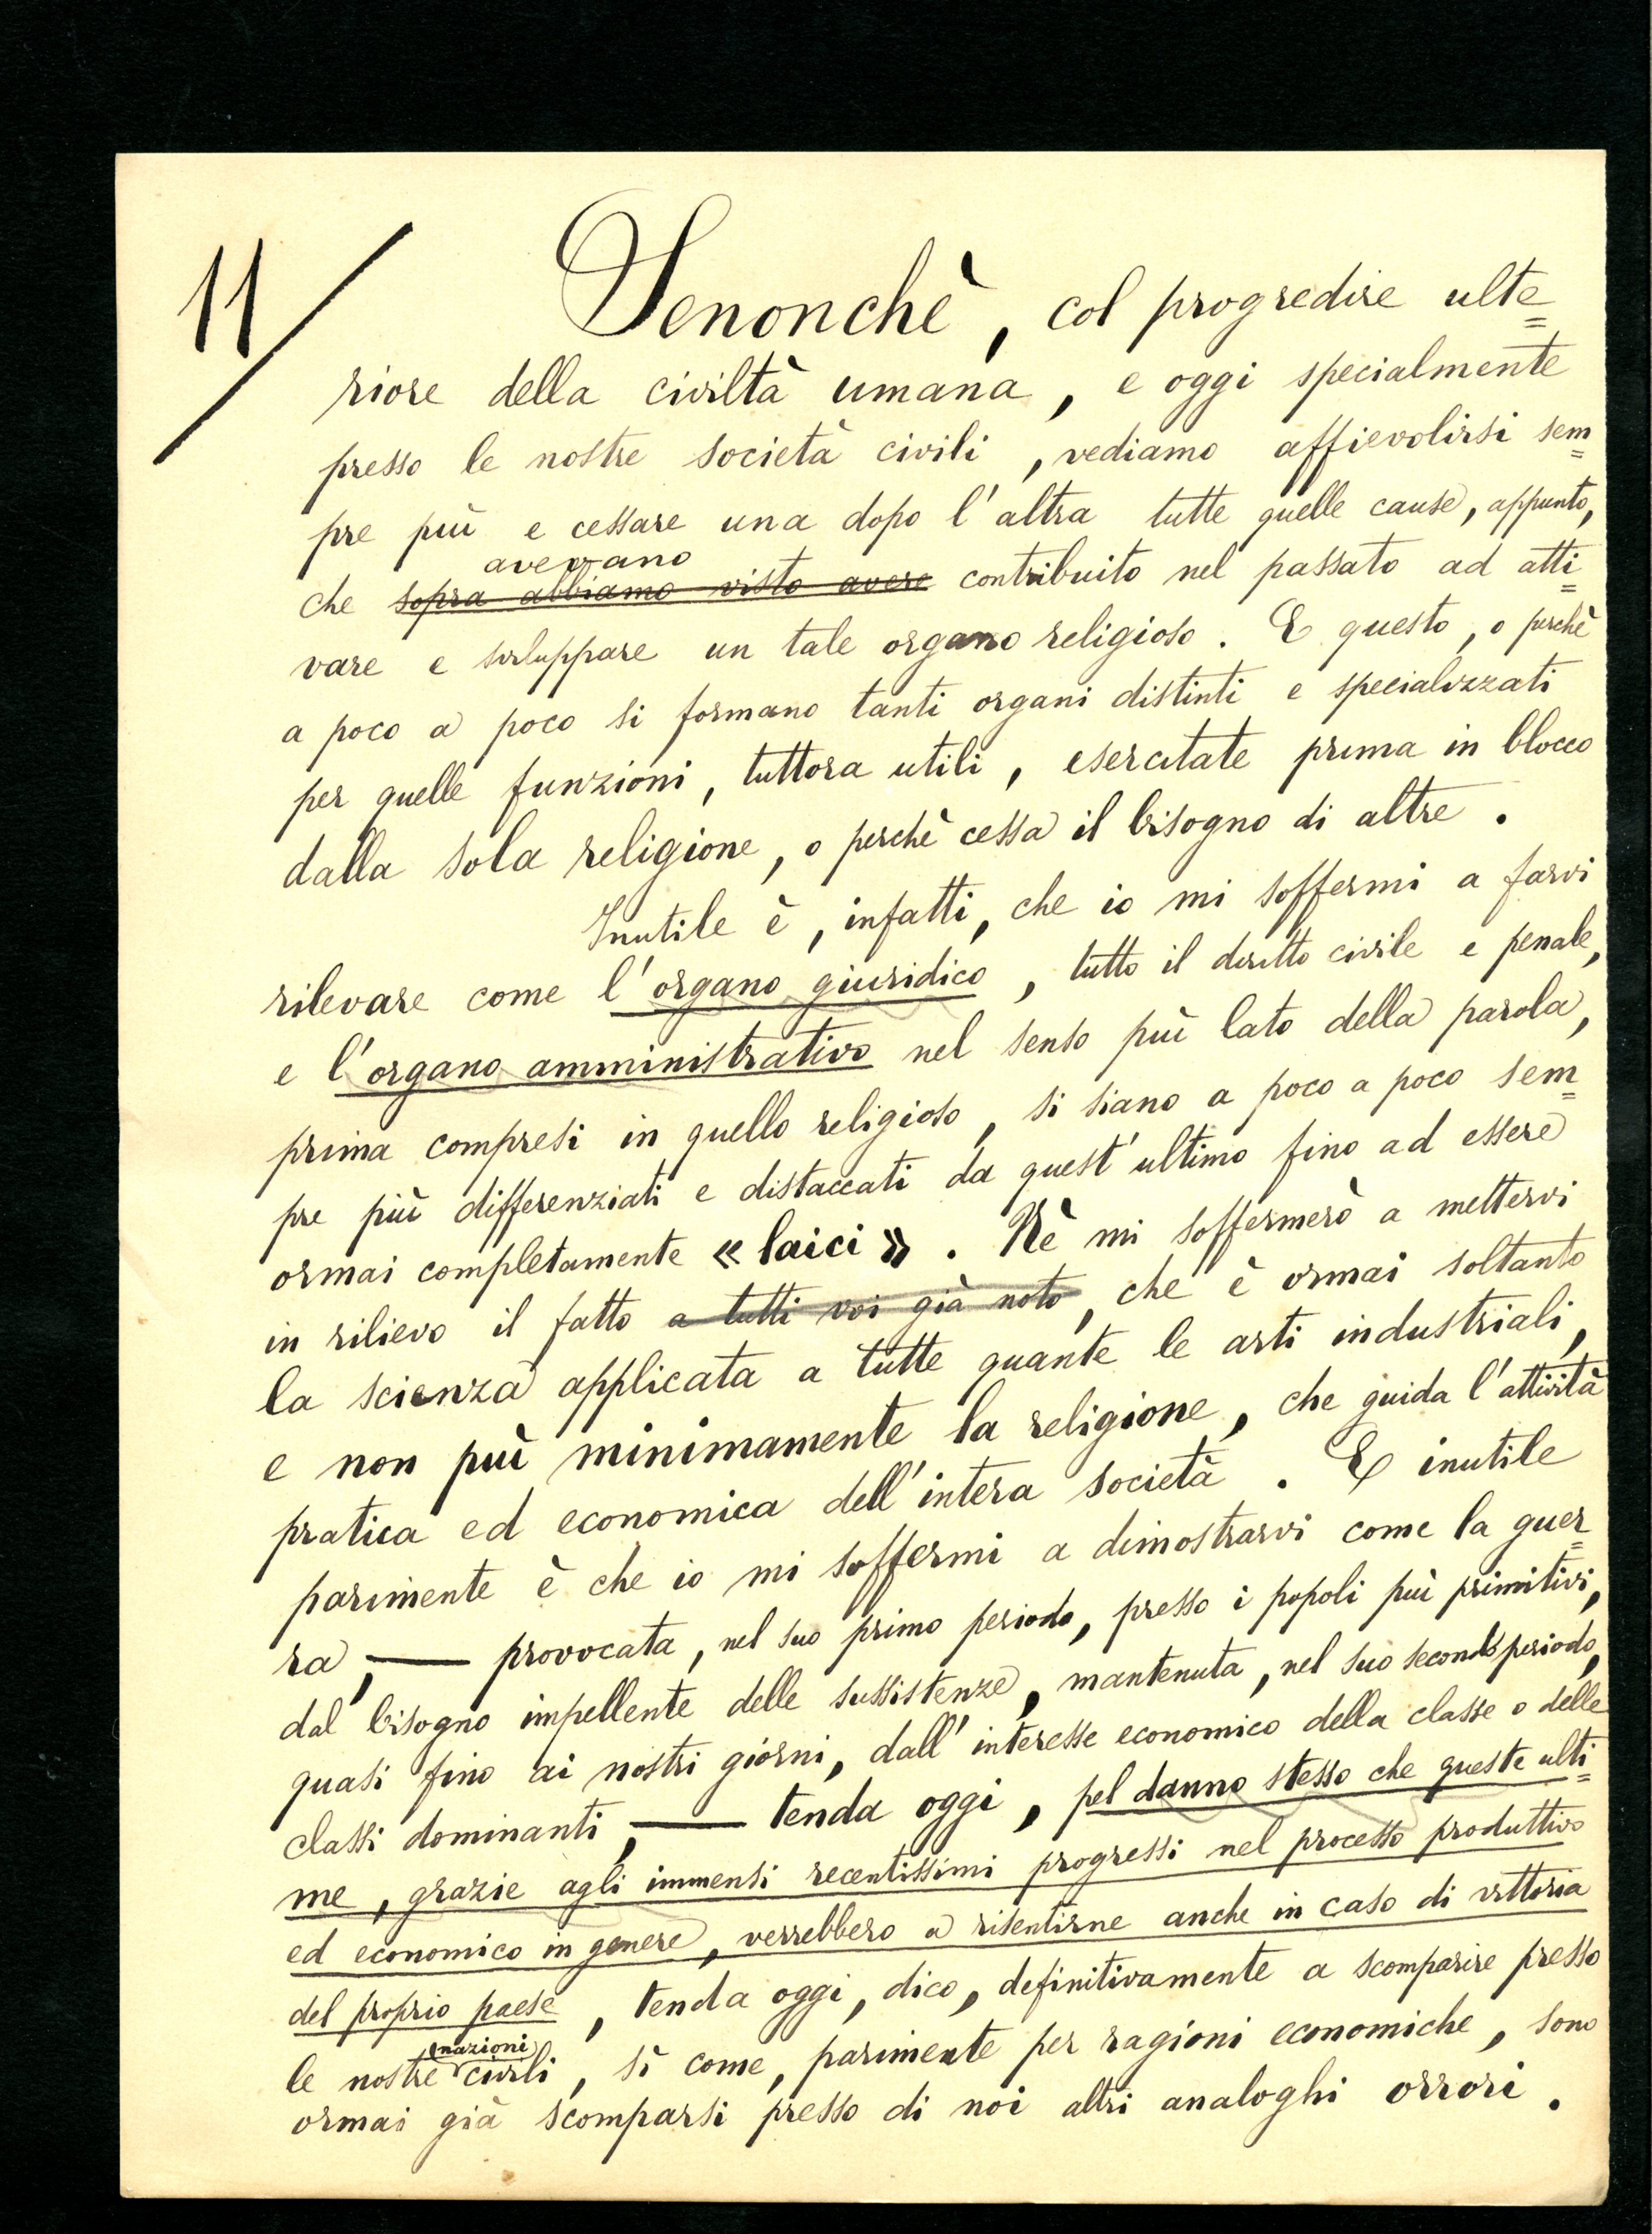 11/
Senonchè, col progredire ulte=
riore della civiltà umana, e oggi specialmente
presso le nostre società civili, vediamo affievolirsi sem=
pre più e cessare una dopo l'altra tutte quelle cause, appunto,
avevano
che sopra abbiamo visto avere contribuito nel passato ad atti=
vare e sviluppare un tale organo religioso. E questo, o perchè
a poco a poco si formano tanti organi distinti e specializzati
per quelle funzioni, tuttora utili, esercitate prima in blocco
dalla sola religione, o perchè cessa il bisogno di altre.
Inutile è, infatti, che io mi soffermi a farvi
rilevare come l'organo giuridico, tutto il diritto civile e penale,
e l'organo amministrativo nel senso più lato della parola,
prima compresi in quello religioso, si siano a poco a poco sem=
pre più differenziati e distaccati da quest'ultimo fino ad essere
ormai completamente «laici». Nè mi soffermerò a mettervi
in rilievo il fatto a tutti voi già noto, che è ormai soltanto
la scienza applicata a tutte quante le arti industriali,
e non più minimamente la religione, che guida l'attività
pratica ed economica dell'intera società. E inutile
parimente è che io mi soffermi a dimostrarvi come la guer=
ra, — provocata, nel suo primo periodo, presso i popoli più primitivi,
dal bisogno impellente delle sussistenze, mantenuta, nel suo secondo periodo,
quasi fino ai nostri giorni, dall'interesse economico della classe o delle
classi dominanti, — tenda oggi, pel danno stesso che queste ulti=
me, grazie agli immensi recentissimi progressi nel processo produttivo
ed economico in genere, verrebbero a risentirne anche in caso di vittoria
del proprio paese, tenda oggi, dico, definitivamente a scomparire presso
nazioni
le nostre civili, sì come, parimente per ragioni economiche, sono
ormai già scomparsi presso di noi altri analoghi orrori.